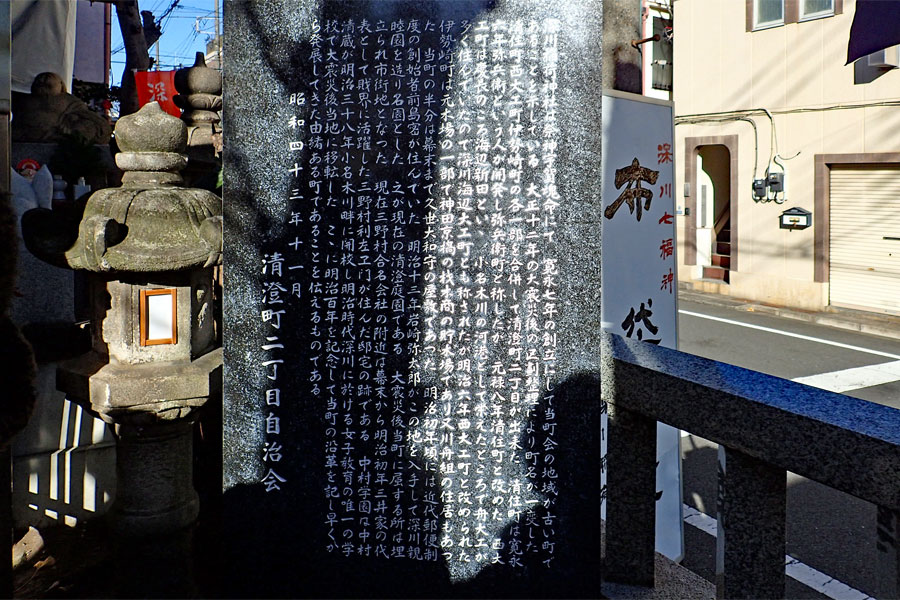 深川稲荷神社は祭神宇賀魂命にて　寛永七年の創立にして当町会の地域が古い町で
あることを示している　大正十二年の大震災後の区劃整理により町名が変更した
清住町西大工町伊勢崎町の各一部を合併して清澄町二丁目が出来た　清住町は寛永
六年弥兵衛という人が開発し弥兵衛町と称したが　元禄八年清住町と改めた　西大
工町は慶長のころ海辺新田といい　小名木川の河港として栄えたところで舟大工が
多く住んでいたので深川海辺大工町と　称されたが明治六年西大工町と改められた
伊勢崎町は元木場の一部で神田京橋の材木商の貯木場であり又川舟組の住居もあっ
た　当町の半分は幕末まで久世大和守の屋敷であった　明治初年頃には近代郵便制
度の創始者前島密が住んでいた　明治十三年岩崎弥太郎がこの地を入手して深川親
睦園を造り名園とした　之が現在の清澄庭園である　大震災後当町に属する所は埋
立られ市街地となった　現在三野村合名会社の附近は幕末から明治初年三井家の代
表として財界に活躍した三野村利左エ門が住んだ邸宅の跡である　中村学園は中村
清蔵が明治三十八年小名木川畔に開校し明治時代深川に於ける女子教育の唯一の学
校で大震災後当地に移転した　こゝに明治百年を記念して当町の沿革を記し早くか
ら発展してきた由緒ある町であることを伝えるものである
昭和四十三年十一月
清澄町二丁目自治会
深川七福神
布袋
深